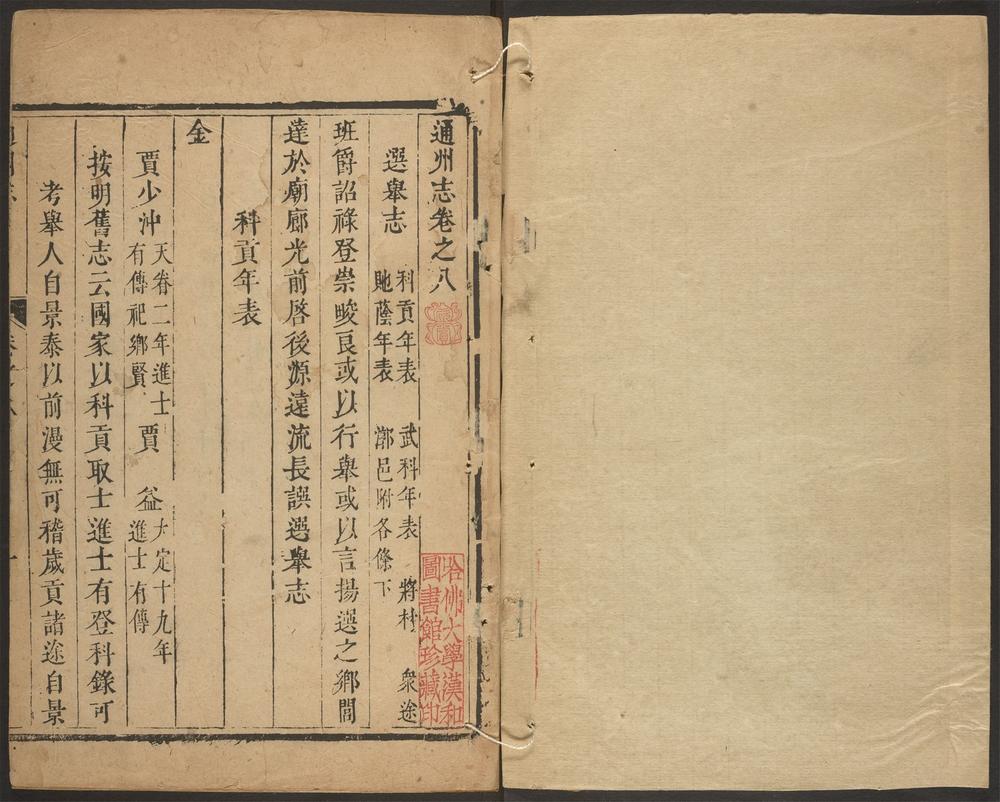 通州志卷之八
選舉志 科貢年表 武科年表 將材 衆途
貤蔭年表 漷邑附各條下
班爵詔祿登崇畯良或以行舉或以言揚選之鄉閭
達於廟廊光前啓後源遠流長譔選舉志
科貢年表
金
賈少冲 天眷二年進士有傳祀鄉賢 賈益 大定十九年進士有傳
按明舊志云國家以科貢取士進士有登科錄可
考舉人自景泰以前漫無可稽歲貢諸途自景
哈佛大學漢和圖書館珍藏印